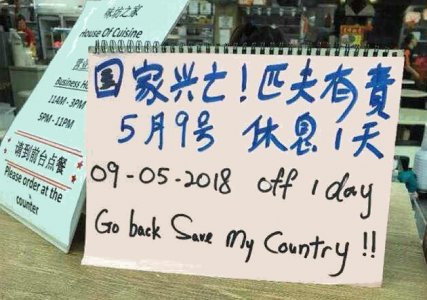 House Of Cuisine
营业
Business
11AM - 3PM
5PM - 11PM
请到前台点餐
Please order at the
counter
国家兴亡！匹夫有責
5月9号 休息1天
09-05-2018 off 1 day
Go back Save My Country !!